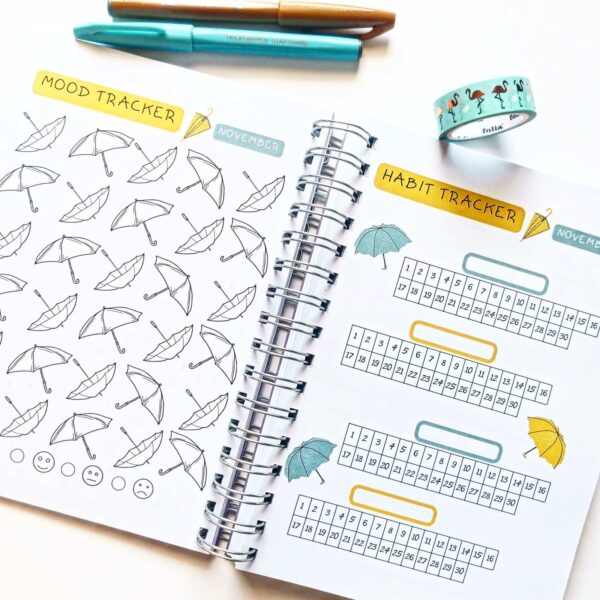 MOOD TRACKER
NOVEMBER
HABIT TRACKER
NOVEMBER
1 2 3 4 5 6 7 8 9 10 11 12 13 14 15 16
17 18 19 20 21 22 23 24 25 26 27 28 29 30
1 2 3 4 5 6 7 8 9 10 11 12 13 14 15 16
17 18 19 20 21 22 23 24 25 26 27 28 29 30
1 2 3 4 5 6 7 8 9 10 11 12 13 14 15 16
17 18 19 20 21 22 23 24 25 26 27 28 29 30
1 2 3 4 5 6 7 8 9 10 11 12 13 14 15 16
17 18 19 20 21 22 23 24 25 26 27 28 29 30
folia